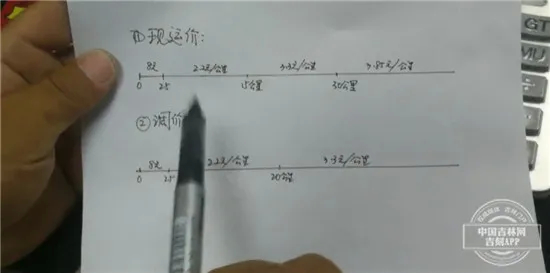 ① 现运价:
8元 2.2元/公里 3.3元/公里 3.85元/公里
0 2.5 15公里 30公里
② 调价
8元 2.2元/公里 3.3元/公里
0 2.5 20公里
中国吉林网
吉刻APP
MU